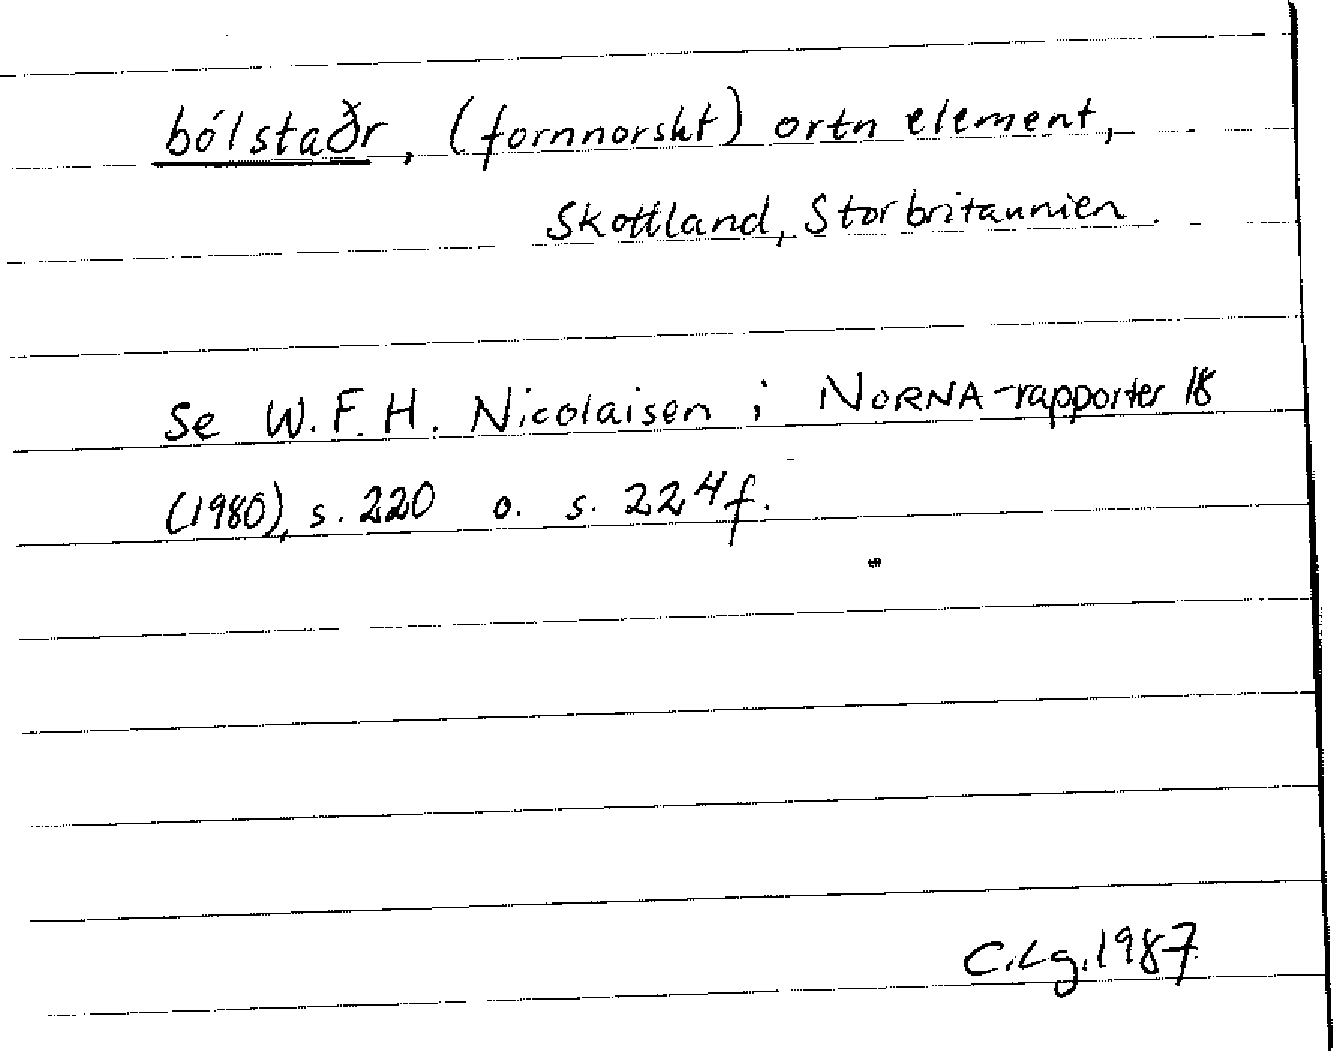 bólstaðr, (fornnorskt) ortn element,
Skottland, Storbritannien.
Se W. F. H. Nicolaisen i NORNA-rapporter 18
(1980), s. 220 o. s. 224 f.
C.Lg.1987